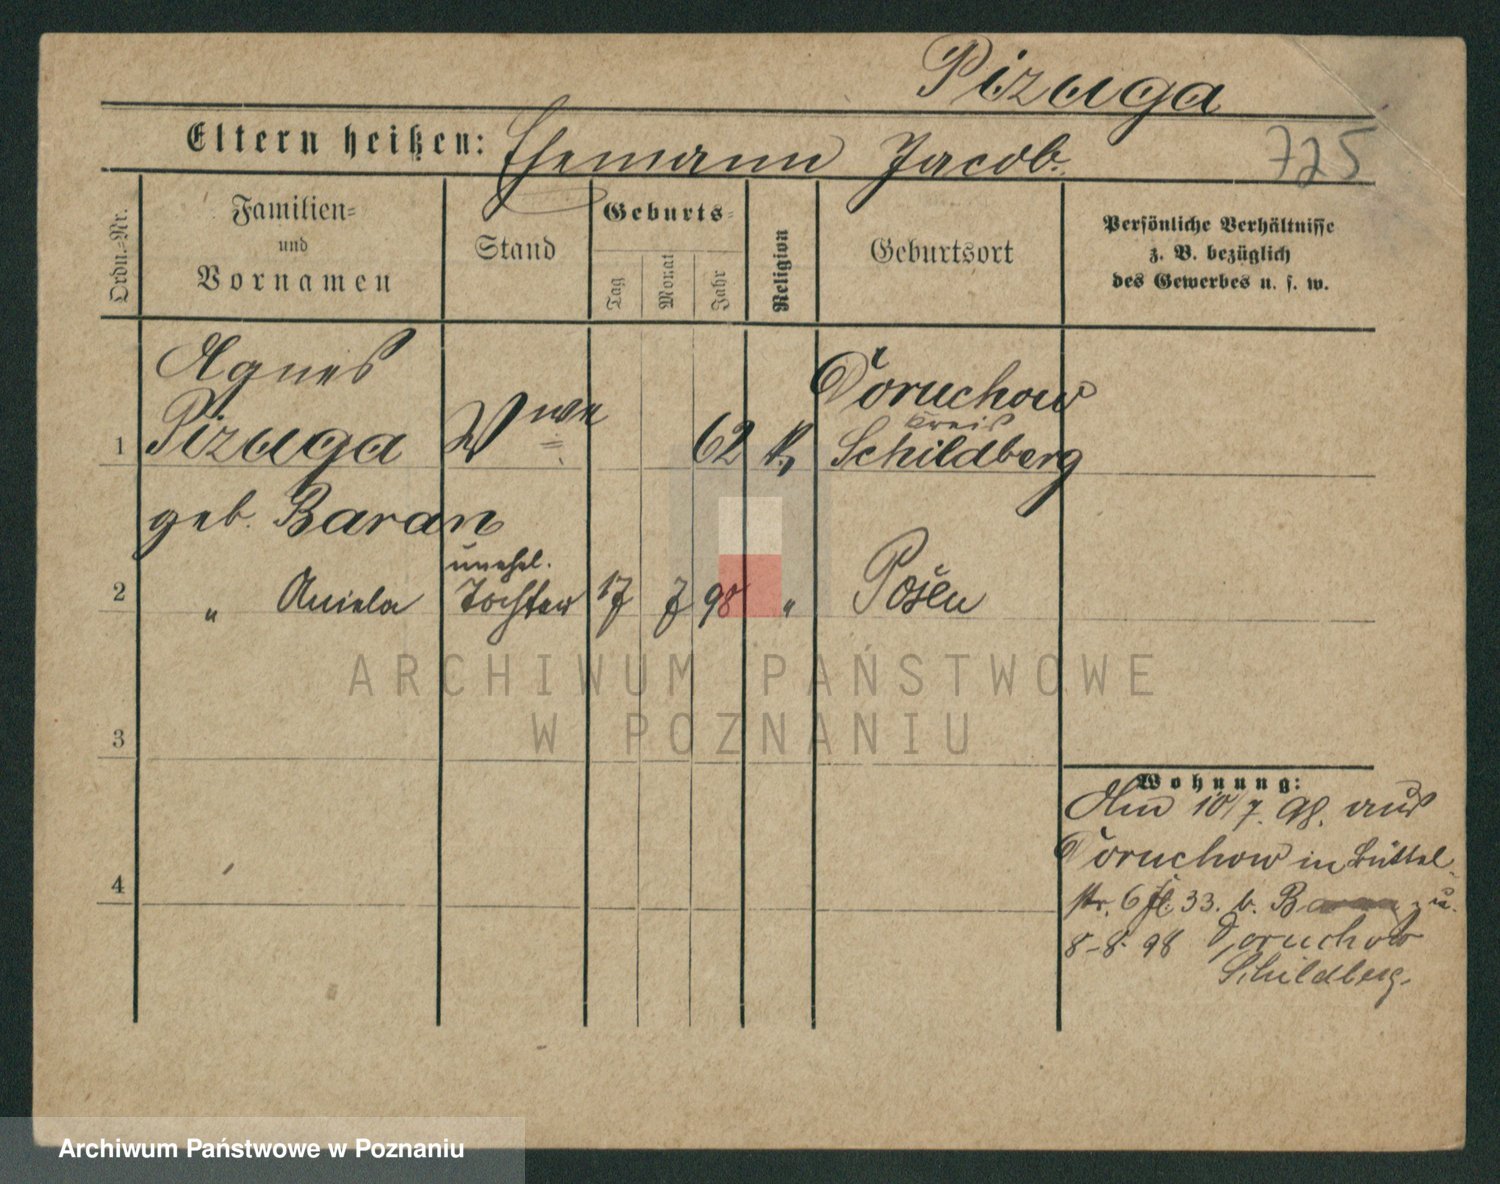 Pizuga
Eltern heißen: Ehemann Jacob.
725
Ordn.-Nr.
Familien-
und
Vornamen
Stand
Geburts-
Tag
Monat
Jahr
Religion
Geburtsort
Persönliche Verhältnisse
z. B. bezüglich
des Gewerbes u. s. w.
Agnes
1 Pizuga Wwe 62 k. Doruchow
Kreis
Schildberg
geb. Baran
2 " Aniela unehel. Tochter 17 7 98 " Posen
ARCHIWUM PAŃSTWOWE
W POZNANIU
3
4
Wohnung:
Am 10/7. 98. aus
Doruchow in Büttel-
str. 6 33. b. Baran
8-8. 98 Doruchow
Schildberg.
Archiwum Państwowe w Poznaniu